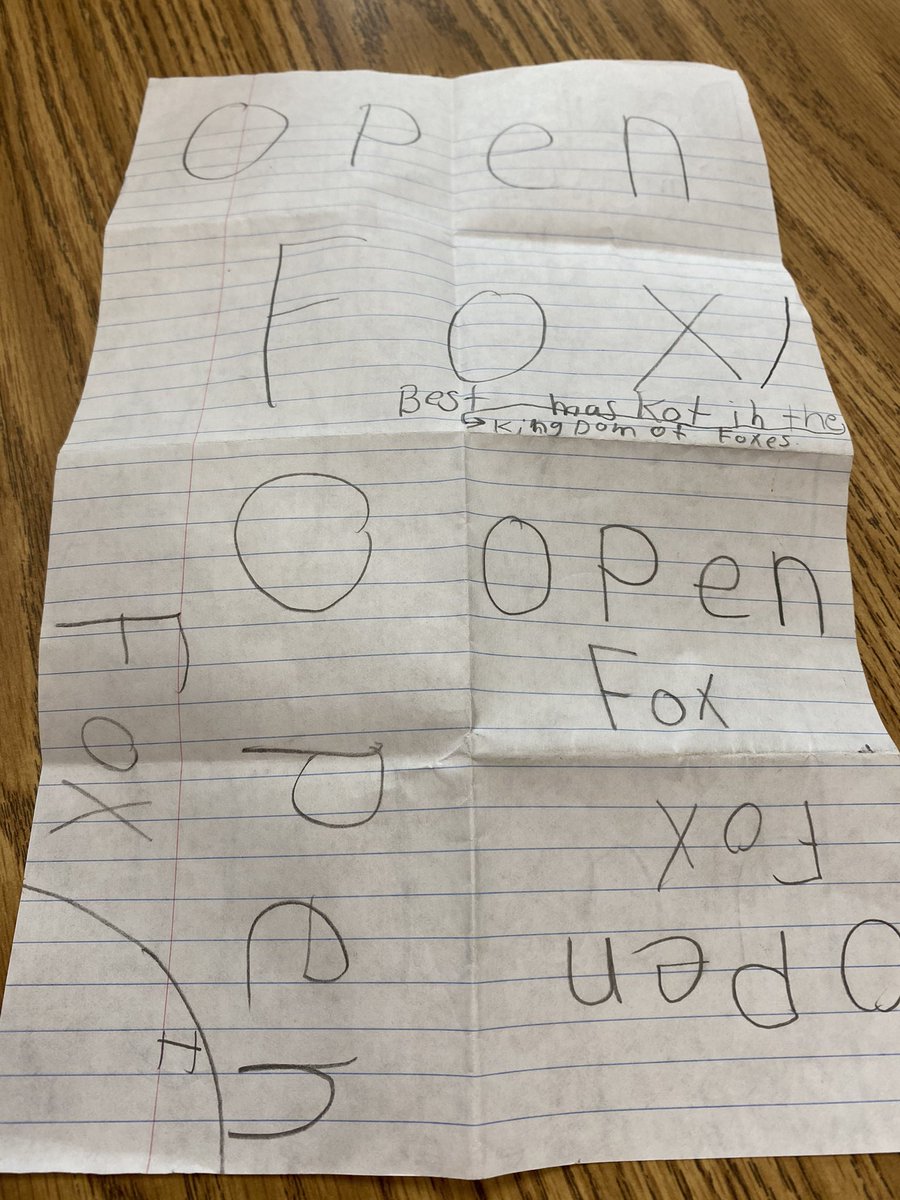 Open
FOX
Best mas Kot in the
King Dom of Foxes
Open
Fox
Open
Fox
Open
Fox
F